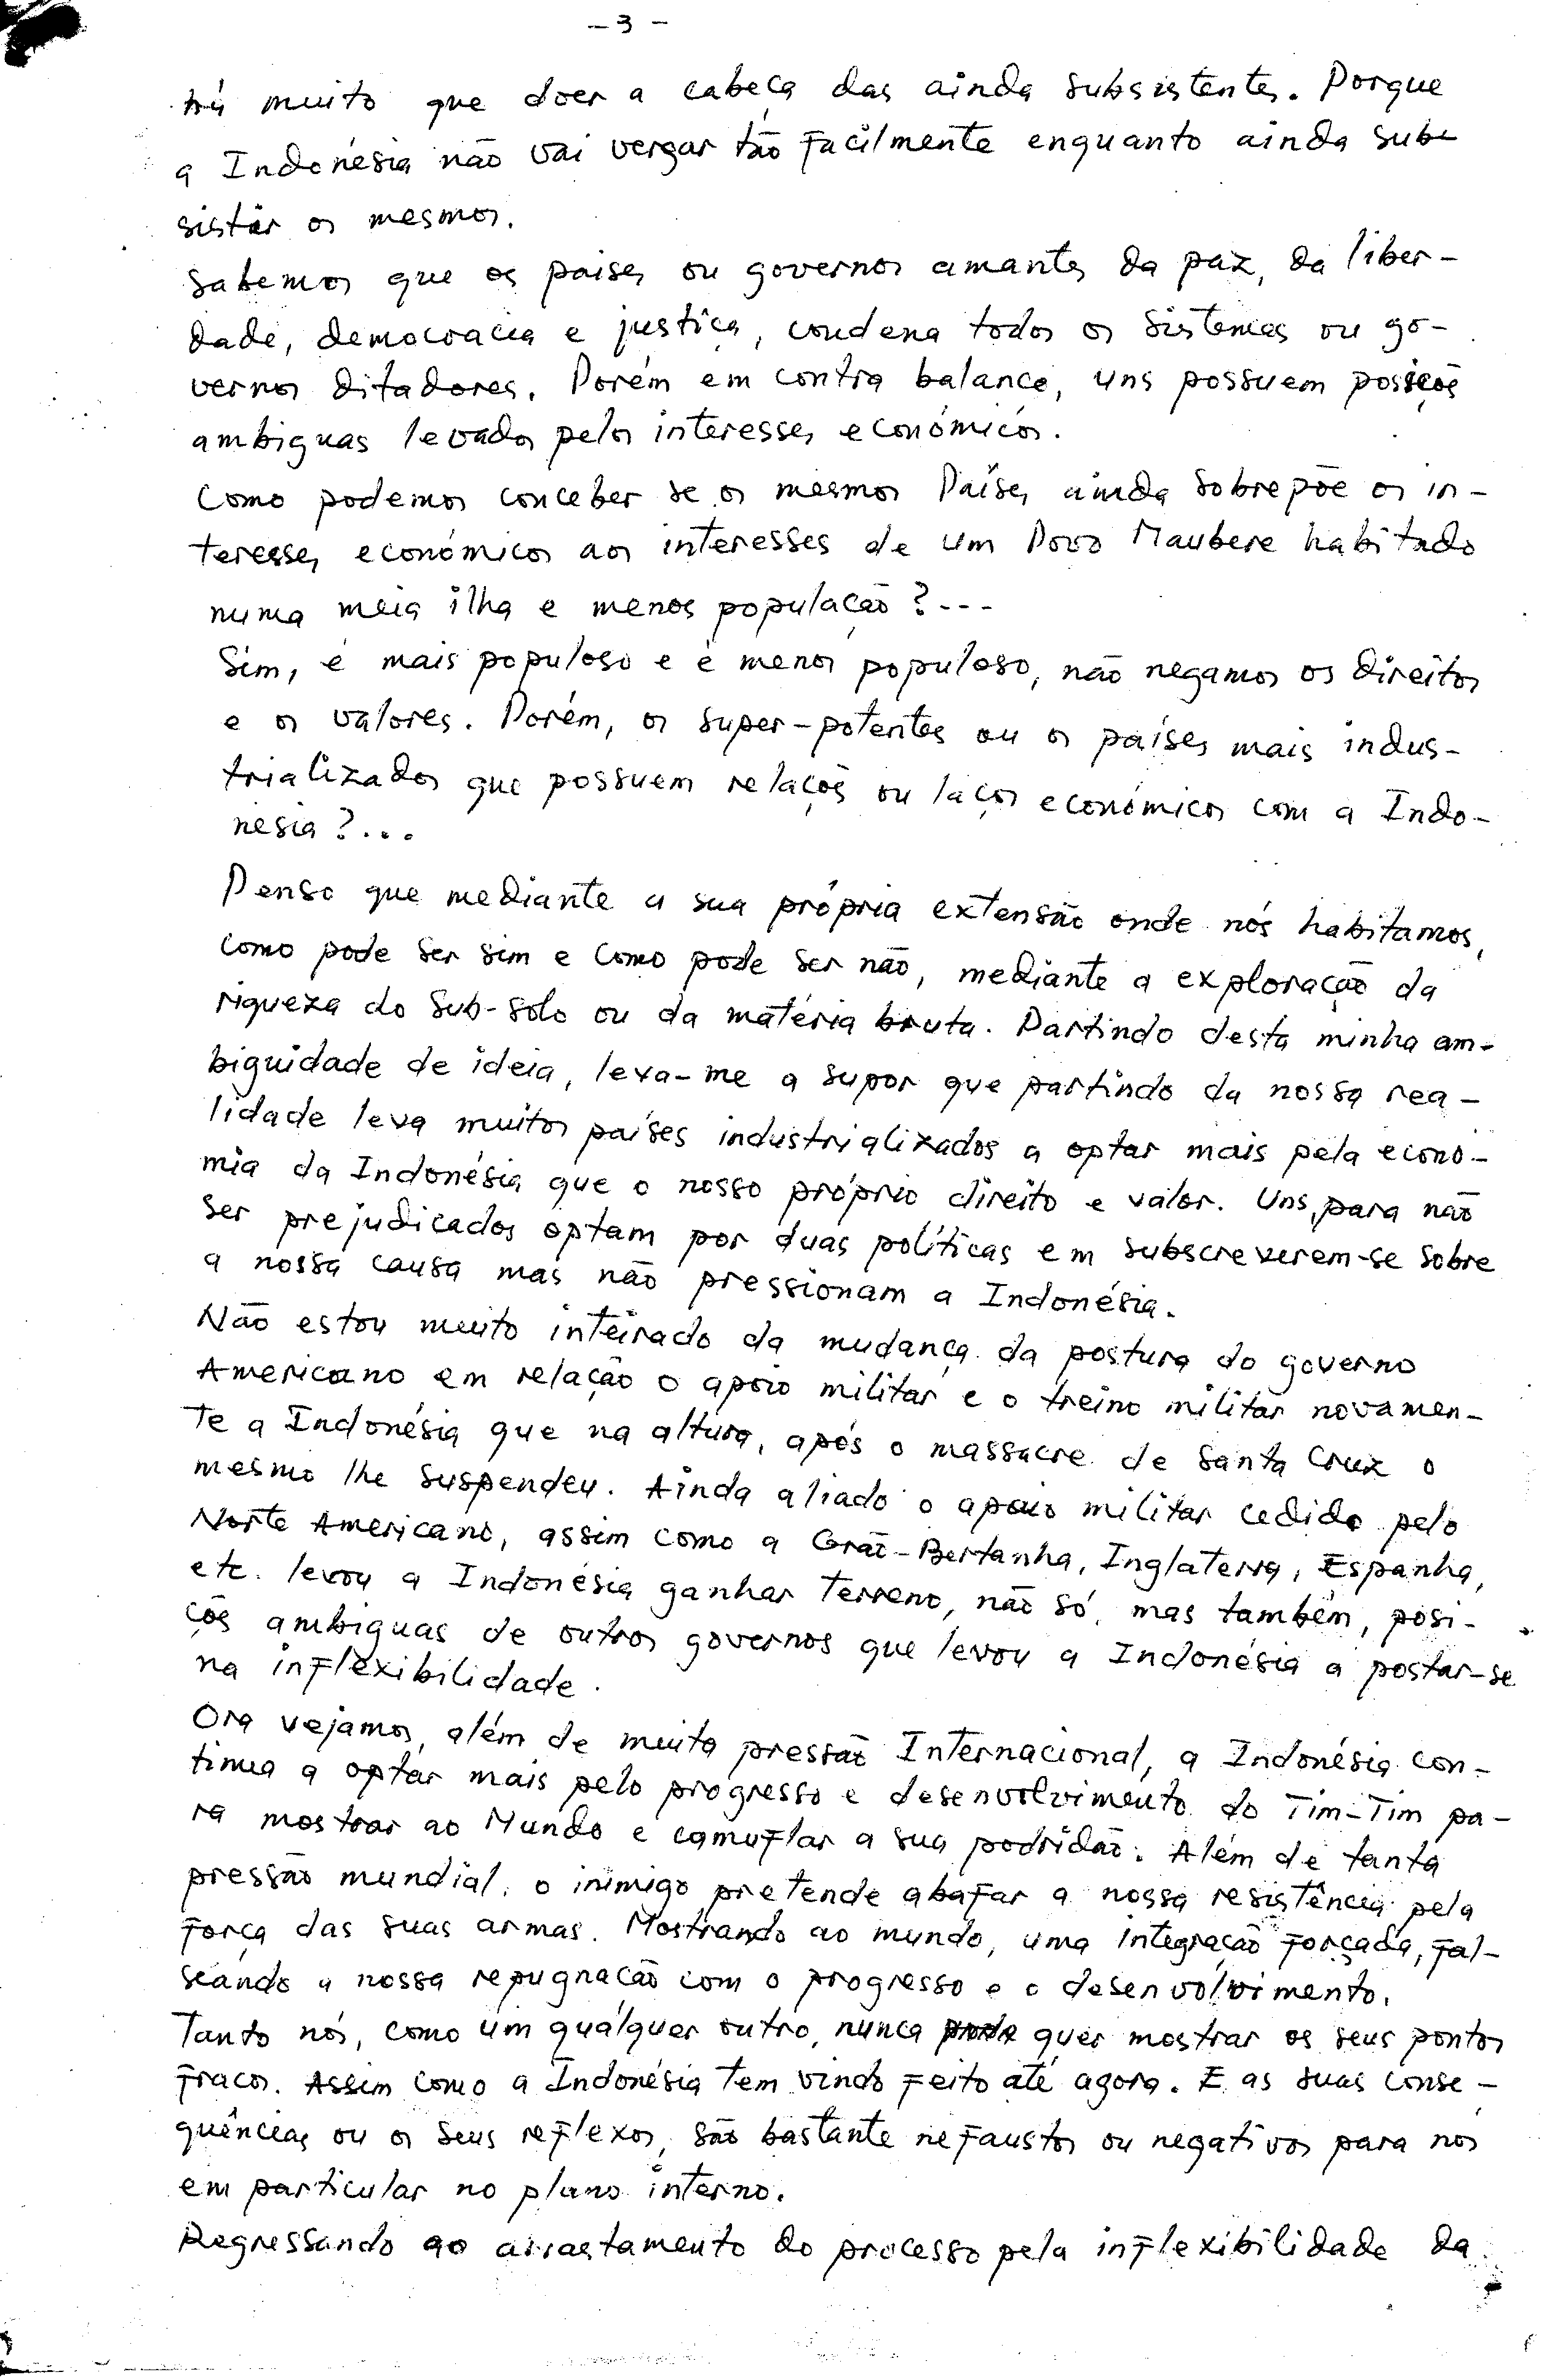 - 3 -
há muito que doer a cabeça das ainda subsistentes. Porque
a Indonésia não vai vergar tão facilmente enquanto ainda sub-
sistir os mesmos.
Sabemos que os paises ou governos amantes da paz, da liber-
dade, democracia e justiça, condena todos os sistemas ou go-
vernos ditadores. Porém em contra balance, uns possuem posições
ambiguas levados pelos interesses económicos.
Como podemos conceber se os mesmos Países ainda sobrepõe os in-
teresses económicos aos interesses de um Povo Maubere habitado
numa meia ilha e menos população?...
Sim, é mais populoso e é menos populoso, não negamos os direitos
e os valores. Porém, os super-potentes ou os países mais indus-
trializados que possuem relaçõs ou laços económicos com a Indo-
nésia?...
Penso que mediante a sua própria extensão onde nós habitamos,
como pode ser sim e como pode ser não, mediante a exploração da
riqueza do sub-solo ou da matéria bruta. Partindo desta minha am-
biguidade de ideia, leva-me a supor que partindo da nossa rea-
lidade leva muitos países industrializados a optar mais pela econo-
mia da Indonésia que o nosso próprio direito e valor. Uns, para não
ser prejudicados optam por duas políticas em subscreverem-se sobre
a nossa causa mas não pressionam a Indonésia.
Não estou muito inteirado da mudança da postura do governo
Americano em relação o apoio militar e o treino militar novamen-
te a Indonésia que na altura, após o massacre de Santa Cruz o
mesmo lhe suspendeu. Ainda aliado o apoio militar cedido pelo
Norte Americano, assim como a Grão-Bertanha, Inglaterra, Espanha,
etc. levou a Indonésia ganhar terreno, não só, mas também, posi-
çõs ambiguas de outros governos que levou a Indonésia a postar-se
na inflexibilidade.
Ora vejamos, além de muita pressão Internacional, a Indonésia con-
tinua a optar mais pelo progresso e desenvolvimento do Tim-Tim pa-
ra mostrar ao Mundo e camuflar a sua podridão. Além de tanta
pressão mundial, o inimigo pretende abafar a nossa resistência pela
força das suas armas. Mostrando ao mundo, uma integração forçada, fal-
seando a nossa repugnação com o progresso e o desenvolvimento.
Tanto nós, como um qualquer outro, nunca quer mostrar os seus pontos
fracos. Assim como a Indonésia tem vindo feito até agora. E as suas conse-
quências ou os seus reflexos, são bastante nefaustos ou negativos para nos
em particular no plano interno.
Regressando ao arrastamento do processo pela inflexibilidade da